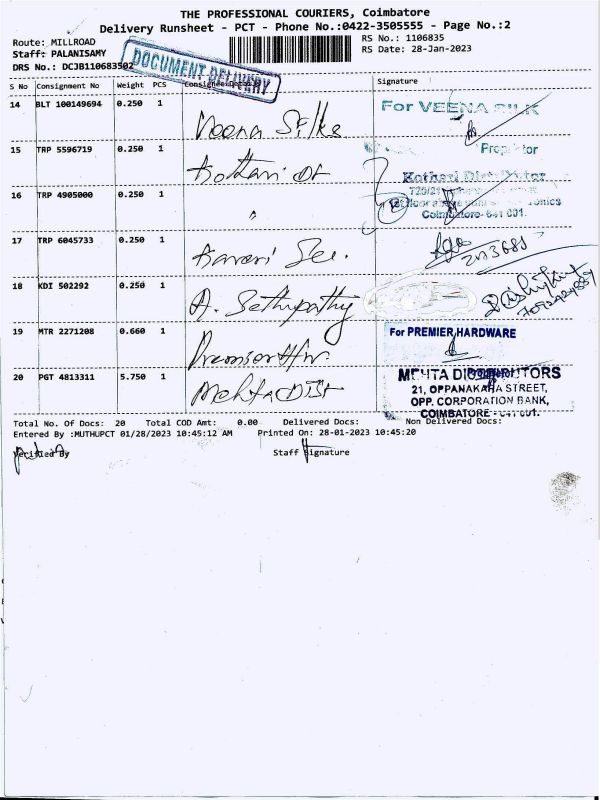 THE PROFESSIONAL COURIERS, Coimbatore
Delivery Runsheet - PCT - Phone No.:0422-3505555 - Page No.:2
Route: MILLROAD RS No.: 1106835
Staff: PALANISAMY RS Date: 28-Jan-2023
DRS No.: DCJB110683502
DOCUMENT DELIVERY
S No Consignment No Weight PCS Consignee Details Signature
14 BLT 100149694 0.250 1 Veena Silks For VEENA SILK
Proprietor
15 TRP 5596719 0.250 1 Kothari Dt Kothari Distributor
16 TRP 4905000 0.250 1 "
Coimbatore-641 001.
17 TRP 6045733 0.250 1
18 KDI 502292 0.250 1 A. Sethupathy
19 MTR 2271208 0.660 1 Premier H/w For PREMIER HARDWARE
20 PGT 4813311 5.750 1 Mehta Dist MEHTA DISTRIBUTORS
21, OPPANAKARA STREET,
OPP. CORPORATION BANK,
COIMBATORE - 641 001.
Total No. Of Docs: 20 Total COD Amt: 0.00 Delivered Docs: Non Delivered Docs:
Entered By :MUTHUPCT 01/28/2023 10:45:12 AM Printed On: 28-01-2023 10:45:20
Verified By Staff Signature